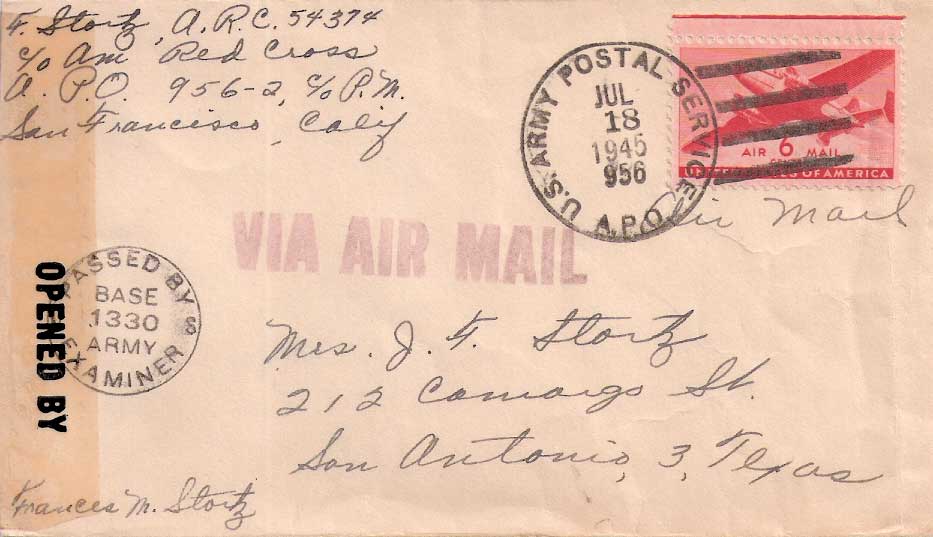 F. Stortz, A.R.C. 54374
c/o Am Red Cross
A.P.O. 956-2, c/o P.M.
San Francisco, Calif
U.S. ARMY POSTAL SERVICE
JUL
18
1945
956
A.P.O.
AIR 6 MAIL
OF AMERICA
Air Mail
VIA AIR MAIL
OPENED BY
PASSED BY
BASE
1330
ARMY
EXAMINER
Mrs. J. F. Stortz
212 Camargo St.
San Antonio, 3, Texas
Frances M. Stortz